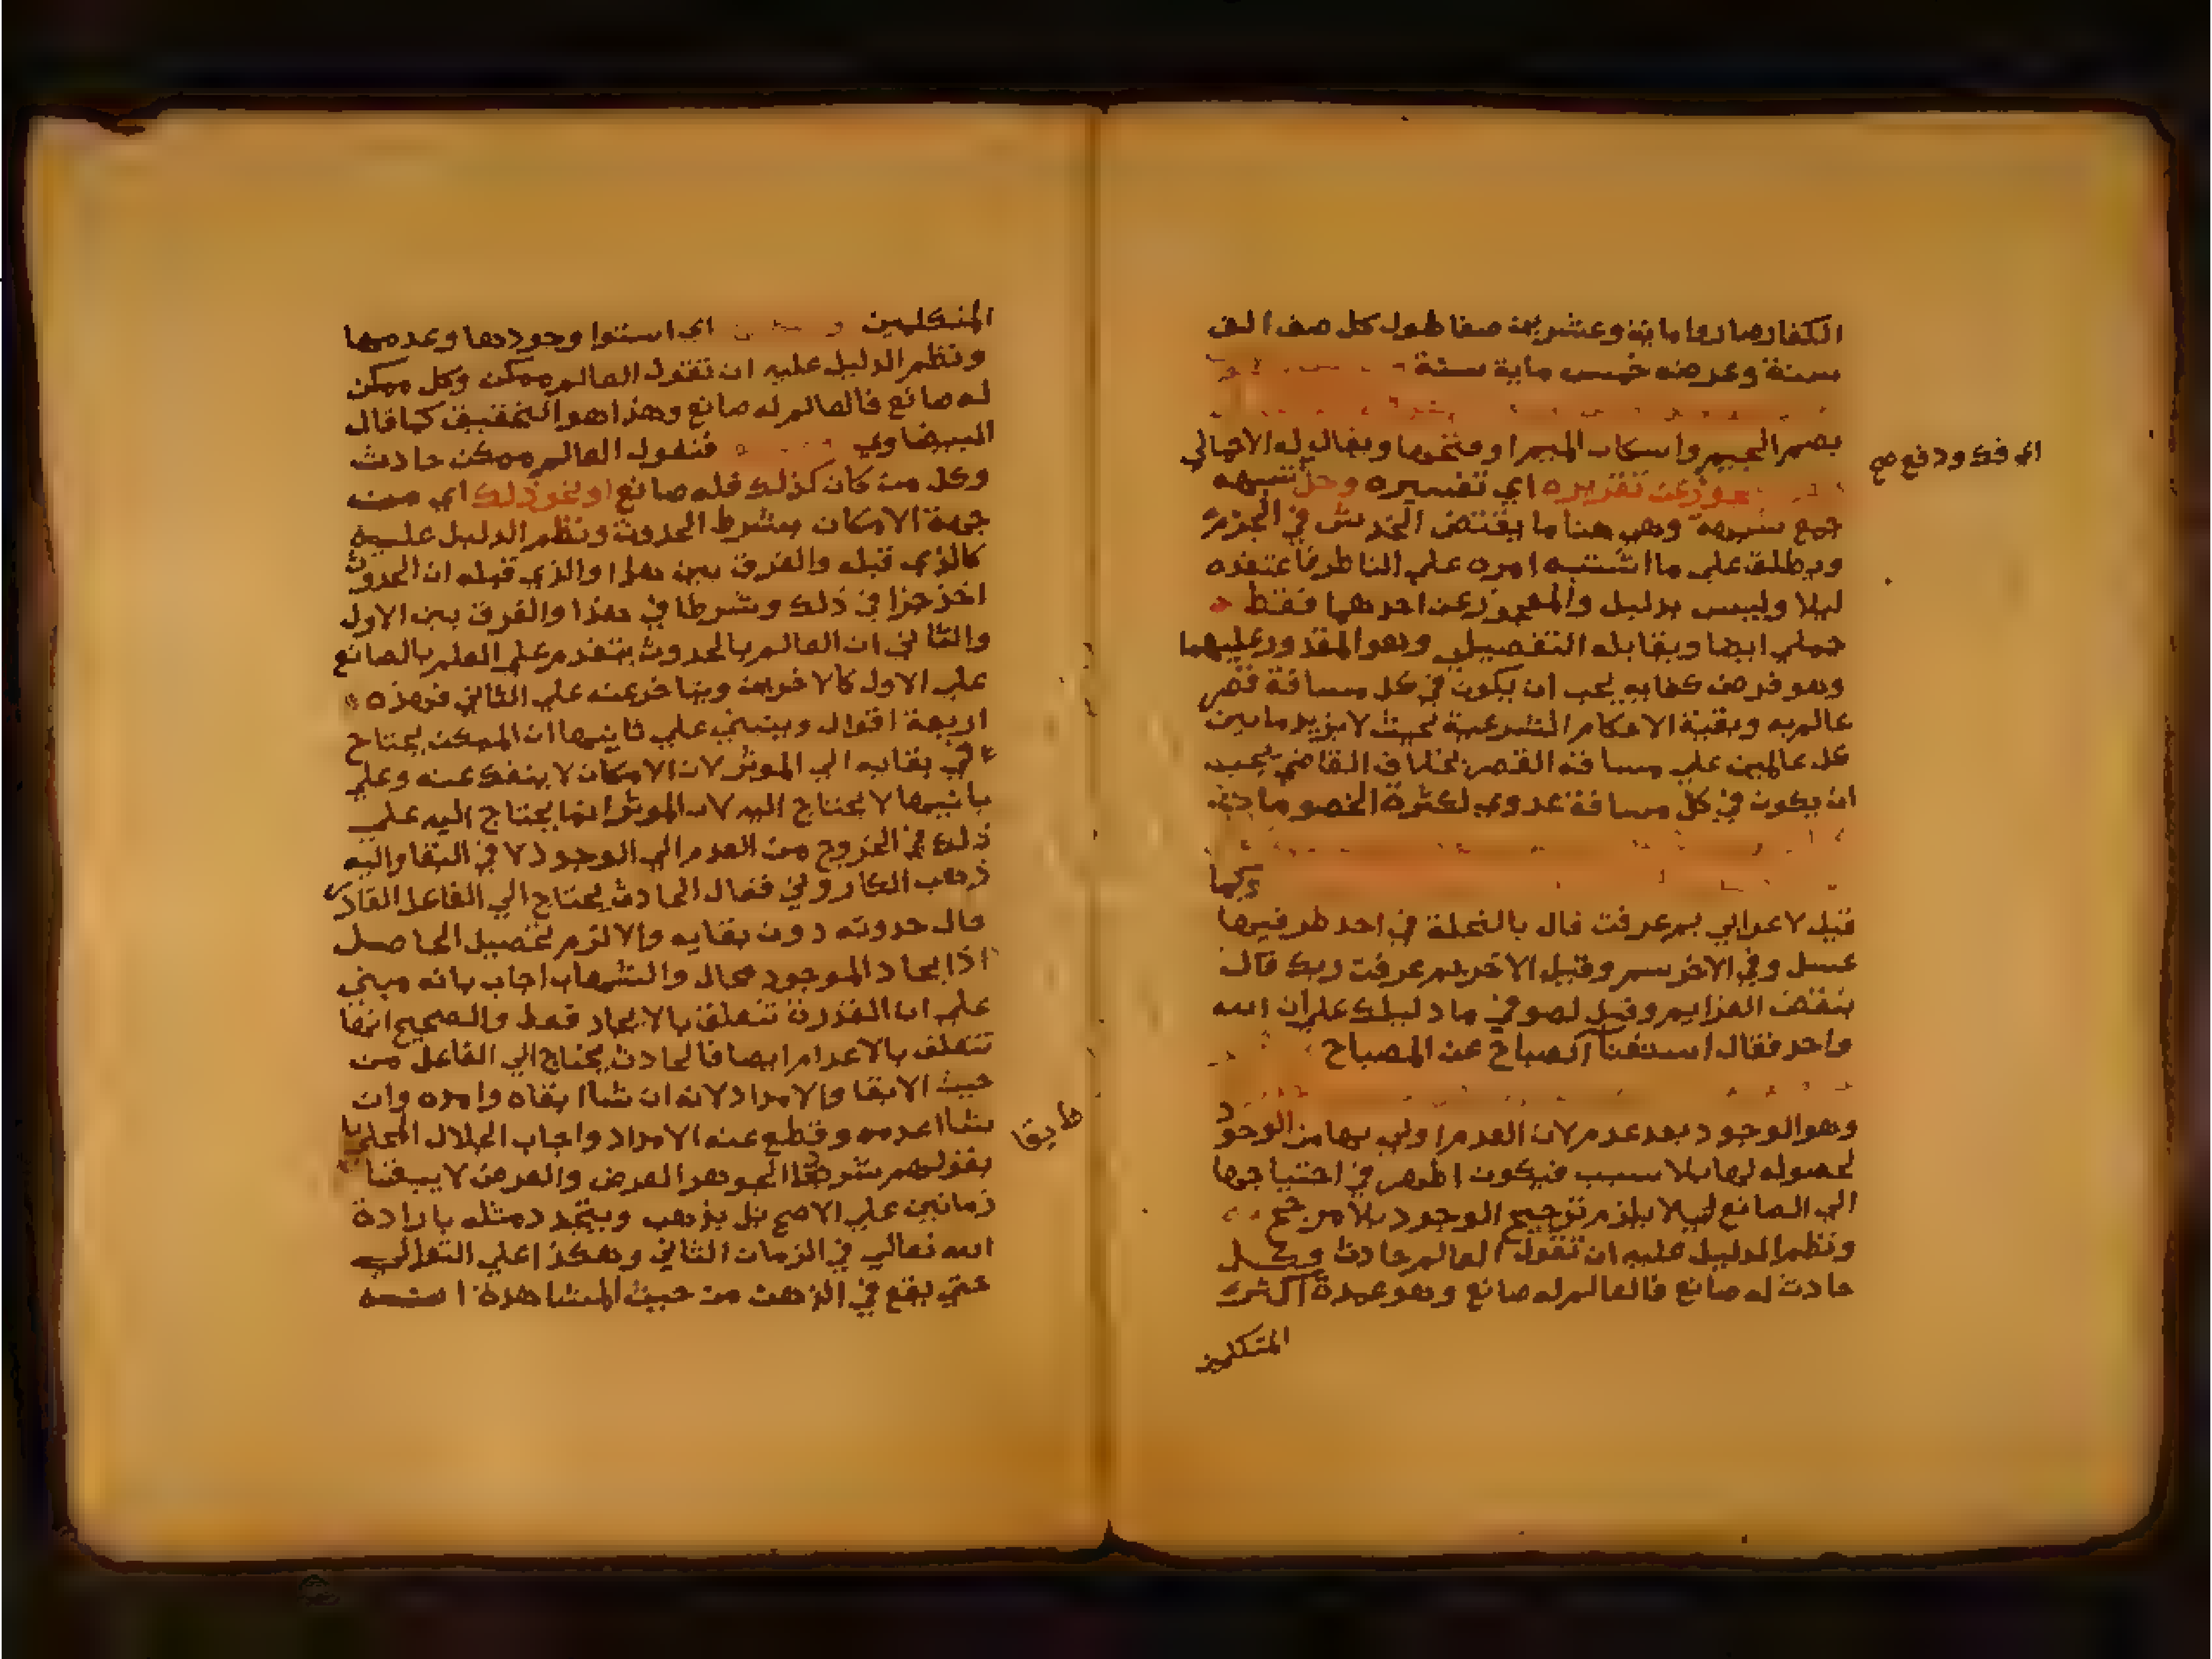 الكفار صاروا ماية وعشرين صفا طول كل صف الف
سنة وعرضه خمس ماية سنة
بضم الجيم واسكان الميم او فتحها ويقال له الاجمالي
اي فك ودفع صح
معجوز عن تقريره اي تفسيره وحل شبهه
جمع شبهة وهي هنا ما يقتضي الخدش في الجزم
ويطلق على ما اشتبه امره علي الناظر فاعتقده
ليلا وليس بدليل والمعجوز عن احدهما فقط
جملي ايضا ويقابله التفصيلي وهو المقدور عليهما
وهو فرض كفايه يجب ان يكون في كل مسافة قصر
عالم به وبقية الاحكام الشرعية بحيث لا يزيد ما بين
كل عالمين علي مسافة القصر بخلاف القاضي يجب
ان يكون في كل مسافة عدوي لكثرة الخصومات
كما
قيل لاعرابي بم عرفت قال بالنحلة في احد طرفيها
عسل وفي الاخر سم وقيل لاخر بم عرفت ربك قال
بنقض العزايم وقيل لصوفي ما دليلك علي ان الله
واحد فقال استغنا الصباح عن المصباح
وهو الوجود بعد عدم لان العدم اولي بها من الوجود
لحصوله لها بلا سبب فيكون اظهر في احتياجها
الي الصانع ليلا يلزم ترجيح الوجود بلا مرجح
ونظم الدليل عليه ان تقول العالم حادث وكل
حادث له صانع فالعالم له صانع وهو عمدة اكثر
المتكلمين
المتكلمين اي استوا وجودها وعدمها
ونظم الدليل عليه ان تقول العالم ممكن وكل ممكن
له صانع فالعالم له صانع وهذا هو التحقيق كما قال
البيضاوي فتقول العالم ممكن حادث
وكل من كان كذلك فله صانع او نحو ذلك اي من
جهة الامكان بشرط الحدوث ونظم الدليل عليه
كالذي قبله والفرق بين هذا والذي قبله ان الحدوث
اخذ جزا في ذلك وشرطا في هذا والفرق بين الاول
والثاني ان العالم بالحدوث يتقدم علي العلم بالصانع
علي الاول كالاخرين ويتاخر عنه علي الثاني فهذه
اربعة اقوال وينبني علي ثانيها ان الممكن يحتاج
في بقايه الي الموثر لان الامكان لا ينفك عنه وعلي
باقيها لا يحتاج اليه لان الموثر انما يحتاج اليه علي
ذلك في الخروج من العدم الي الوجود لا في البقا واليه
ذهب الكازروني فقال الحادث يحتاج الي الفاعل القادر
حال حدوثه دون بقايه والا لزم تحصيل الحاصل
اذ ايجاد الموجود محال والشهاب اجاب بانه مبني
علي ان القدرة تتعلق بالايجاد فقط والصحيح انها
تتعلق بالاعدام ايضا فالحادث يحتاج الي الفاعل من
حيث الابقا والامداد لانه ان شاا بقاه وامده وان
شاا عدمه وقطع عنه الامداد واجاب الجلال المحلي
طبقا
بقولهم شرط الجوهر العرض والعرض لا يبقا
زمانين علي الاصح بل يذهب ويتجدد مثله بارادة
الله تعالي في الزمان الثاني وهكذا علي التوالي
حتي يقع في الذهن من حيث المشاهدة